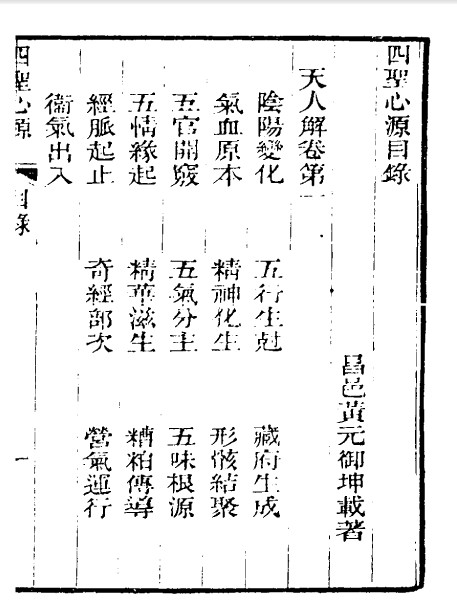 四聖心源目錄
昌邑黃元御坤載著
天人解卷第一
陰陽變化 五行生尅 藏府生成
氣血原本 精神化生 形骸結聚
五官開竅 五氣分主 五味根源
五情緣起 精華滋生 糟粕傳導
經脈起止 奇經部次 營氣運行
衞氣出入
四聖心源 目錄 一